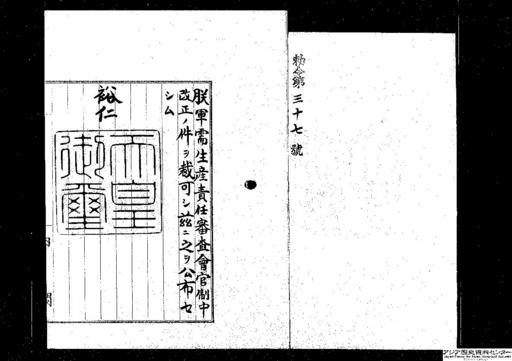 勅令第三十七號
朕軍需生産責任審査會官制中
改正ノ件ヲ裁可シ茲ニ之ヲ公布セ
シム
裕仁
天皇
御璽
内閣
アジア歴史資料センター